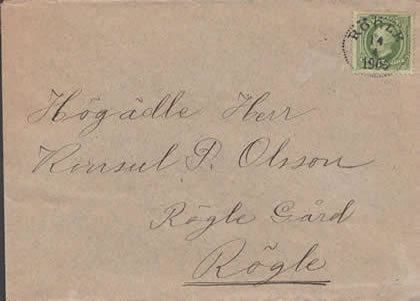 RÖGLE
14
190
Högädle Herr
Konsul P. Olsson
Rögle Gård
Rögle